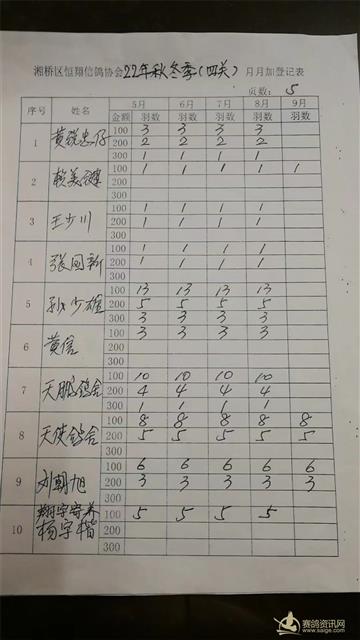 湘桥区恒翔信鸽协会22年秋冬季(四关)月月加登记表
页数: 5
序号 姓名 5月 6月 7月 8月 9月
金额 羽数 羽数 羽数 羽数 羽数
1 黄锐忠仔 100 3 3 3 3
200 2 2 2 2
300 1 1 1 1
2 100 1 1 1 1 1
200
300
3 王少川 100 1 1 1 1
200 1 1 1 1
300
4 张国新 100 1 1 1 1
200 1 1 1 1
300
5 孙少雄 100 13 13 13 13
200 5 5 5 5
300 3 3 3 3
6 黄信 100 3 3 3 3
200
300
7 天鹏鸽舍 100 10 10 10 10
200 4 4 4 4
300 1 1 1 1
8 天使鸽舍 100 8 8 8 8 8
200 5 5 5 5 5
300
9 刘朝旭 100 6 6 6 6 6
200 3 3 3 3 3
300
10 翔宇寄养 100 5 5 5 5
杨宇楷 200
300
赛鸽资讯网
www.saige.com